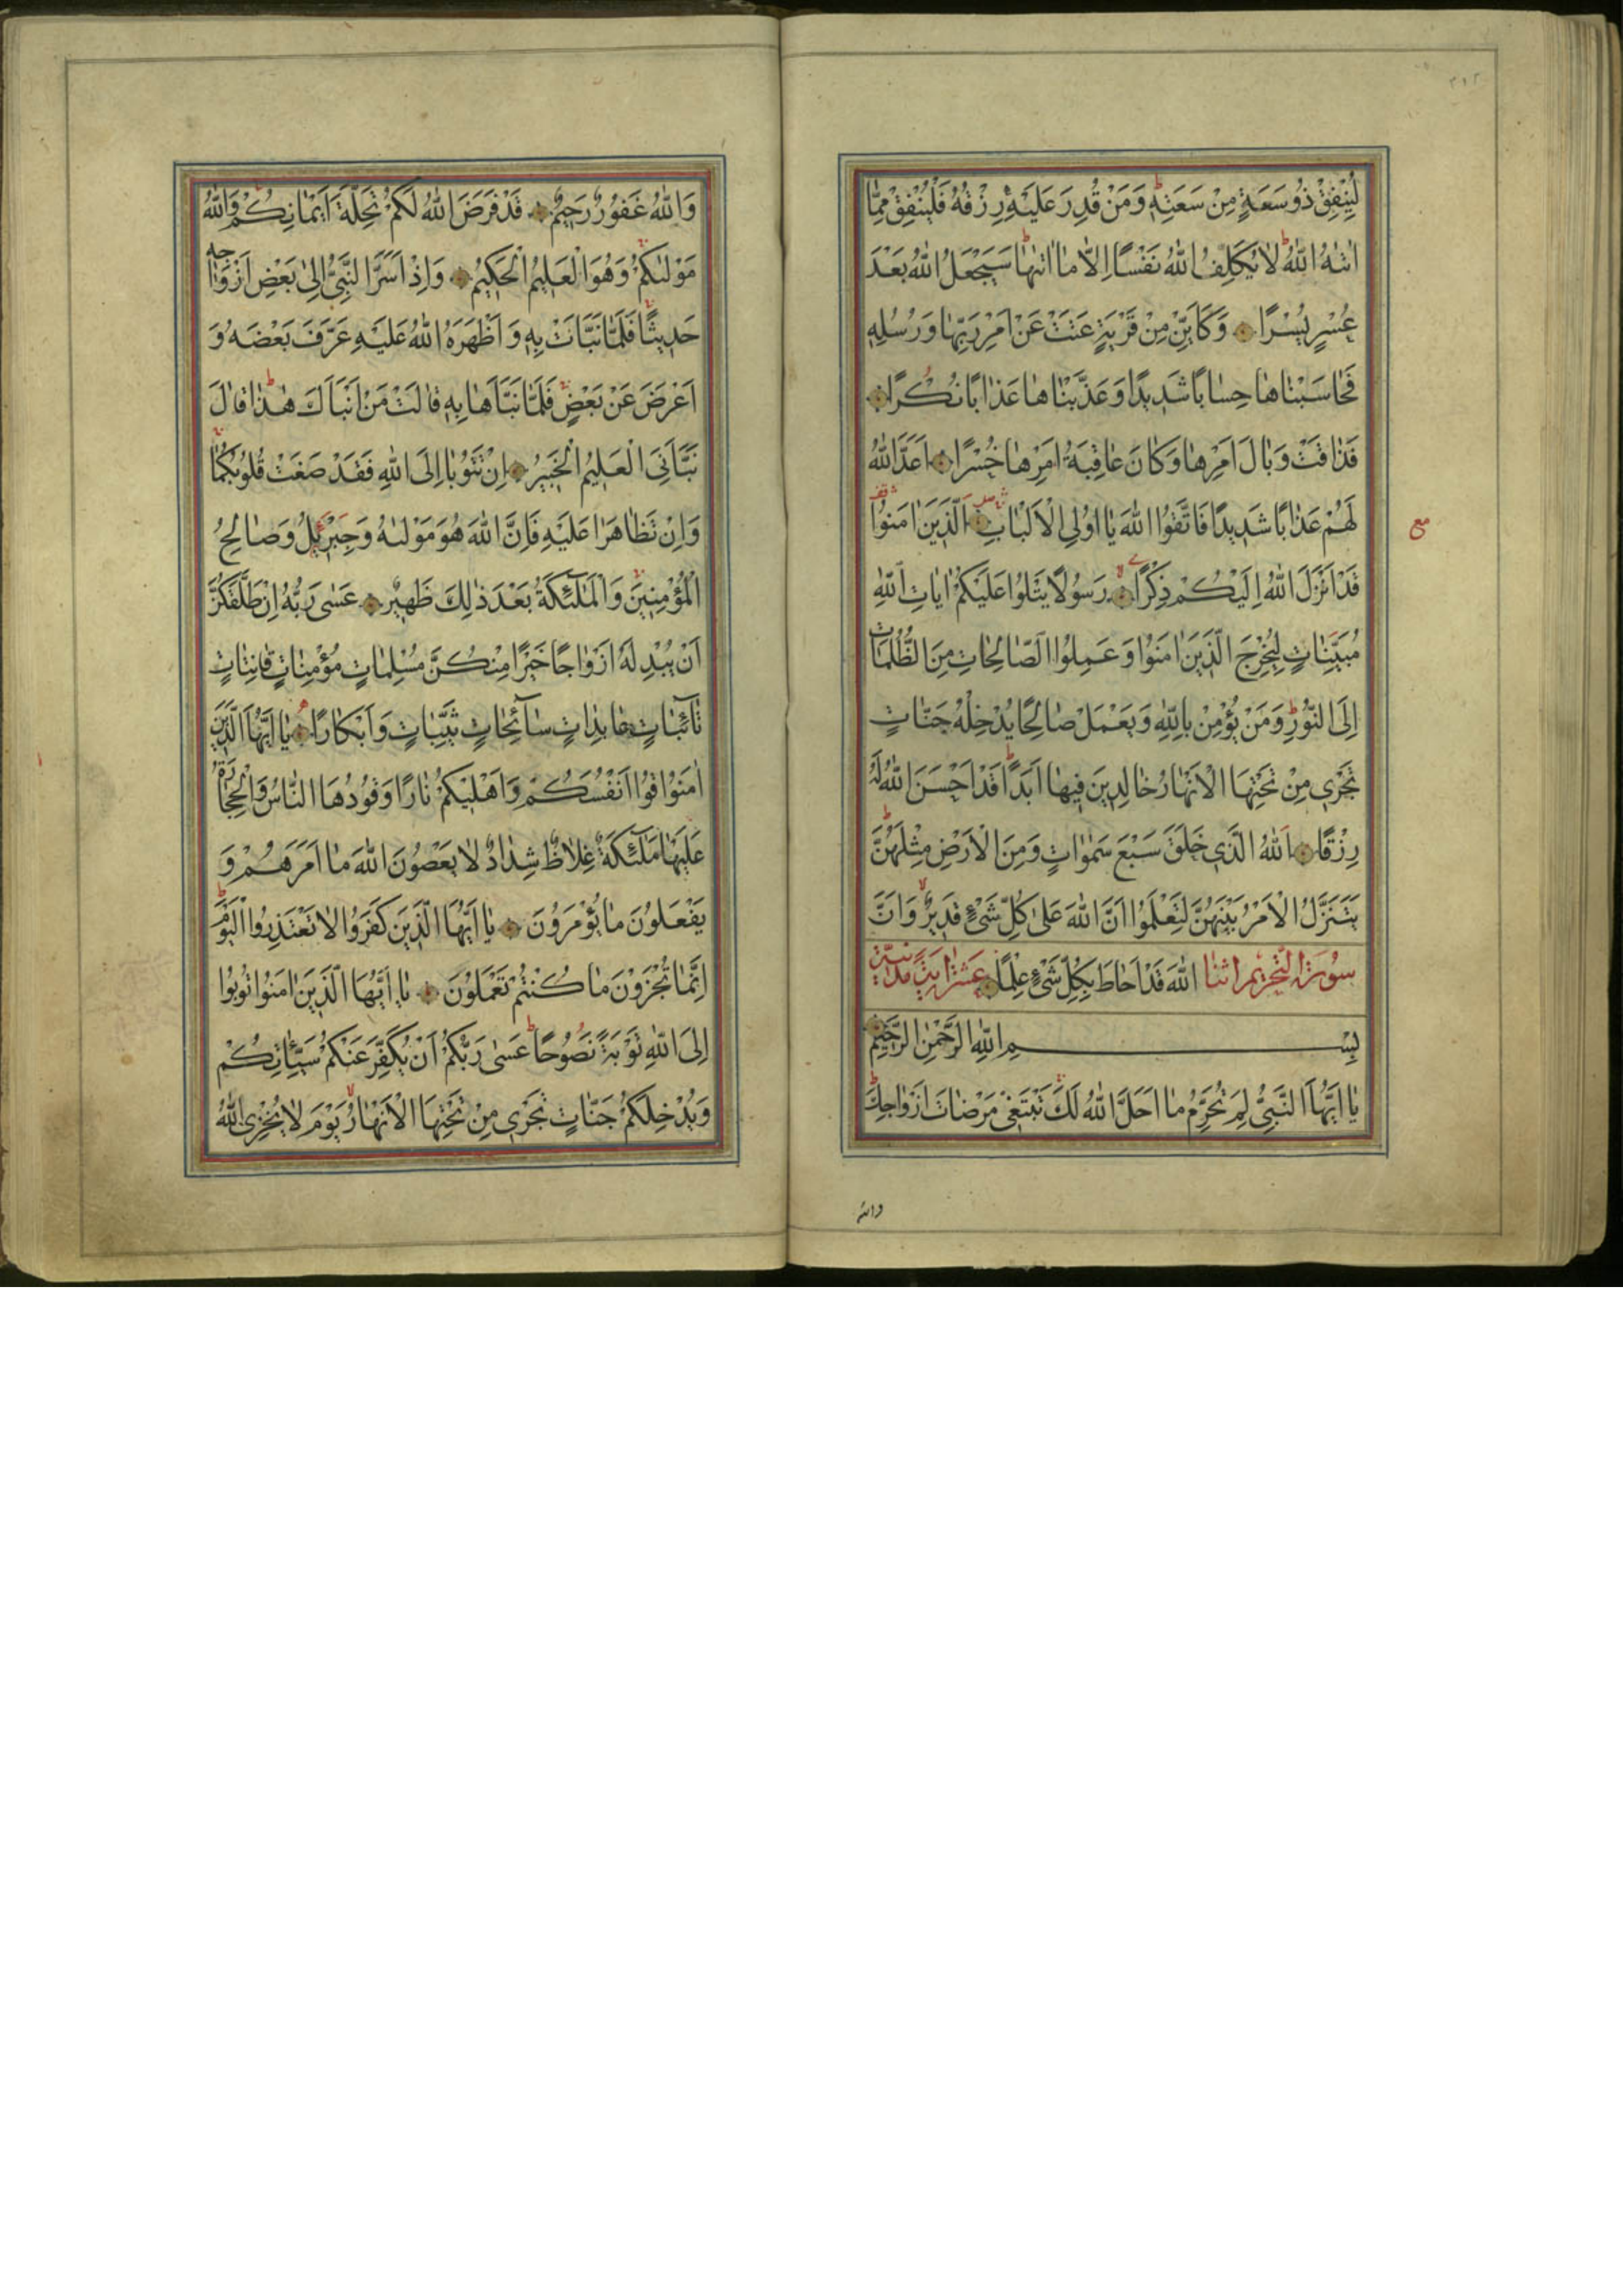 ٣١٢
لِيُنْفِقْ ذُو سَعَةٍ مِنْ سَعَتِهِ وَمَنْ قُدِرَ عَلَيْهِ رِزْقُهُ فَلْيُنْفِقْ مِمَّا
اٰتٰهُ اللّٰهُ لَا يُكَلِّفُ اللّٰهُ نَفْسًا اِلَّا مَا اٰتٰهَا سَيَجْعَلُ اللّٰهُ بَعْدَ
عُسْرٍ يُسْرًا وَكَاَيِّنْ مِنْ قَرْيَةٍ عَتَتْ عَنْ اَمْرِ رَبِّهَا وَرُسُلِهِ
فَحَاسَبْنَاهَا حِسَابًا شَدِيدًا وَعَذَّبْنَاهَا عَذَابًا نُكْرًا
فَذَاقَتْ وَبَالَ اَمْرِهَا وَكَانَ عَاقِبَةُ اَمْرِهَا خُسْرًا اَعَدَّ اللّٰهُ
لَهُمْ عَذَابًا شَدِيدًا فَاتَّقُوا اللّٰهَ يَا اُولِي الْاَلْبَابِ الَّذِينَ اٰمَنُوا
مع
قَدْ اَنْزَلَ اللّٰهُ اِلَيْكُمْ ذِكْرًا رَسُولًا يَتْلُوا عَلَيْكُمْ اٰيَاتِ اللّٰهِ
مُبَيِّنَاتٍ لِيُخْرِجَ الَّذِينَ اٰمَنُوا وَعَمِلُوا الصَّالِحَاتِ مِنَ الظُّلُمَاتِ
اِلَى النُّورِ وَمَنْ يُؤْمِنْ بِاللّٰهِ وَيَعْمَلْ صَالِحًا يُدْخِلْهُ جَنَّاتٍ
تَجْرِي مِنْ تَحْتِهَا الْاَنْهَارُ خَالِدِينَ فِيهَا اَبَدًا قَدْ اَحْسَنَ اللّٰهُ لَهُ
رِزْقًا اَللّٰهُ الَّذِي خَلَقَ سَبْعَ سَمٰوَاتٍ وَمِنَ الْاَرْضِ مِثْلَهُنَّ
يَتَنَزَّلُ الْاَمْرُ بَيْنَهُنَّ لِتَعْلَمُوا اَنَّ اللّٰهَ عَلٰى كُلِّ شَيْءٍ قَدِيرٌ وَاَنَّ
سُورَةُ التَّحْرِيمِ اثْنَتَا اللّٰهَ قَدْ اَحَاطَ بِكُلِّ شَيْءٍ عِلْمًا عَشْرَ اٰيَةً مَدَنِيَّةٌ
بِسْمِ اللّٰهِ الرَّحْمٰنِ الرَّحِيمِ
يَا اَيُّهَا النَّبِيُّ لِمَ تُحَرِّمُ مَا اَحَلَّ اللّٰهُ لَكَ تَبْتَغِي مَرْضَاتَ اَزْوَاجِكَ
والله
وَاللّٰهُ غَفُورٌ رَحِيمٌ قَدْ فَرَضَ اللّٰهُ لَكُمْ تَحِلَّةَ اَيْمَانِكُمْ وَاللّٰهُ
مَوْلٰيكُمْ وَهُوَ الْعَلِيمُ الْحَكِيمُ وَاِذْ اَسَرَّ النَّبِيُّ اِلٰى بَعْضِ اَزْوَاجِهِ
حَدِيثًا فَلَمَّا نَبَّاَتْ بِهِ وَاَظْهَرَهُ اللّٰهُ عَلَيْهِ عَرَّفَ بَعْضَهُ وَ
اَعْرَضَ عَنْ بَعْضٍ فَلَمَّا نَبَّاَهَا بِهِ قَالَتْ مَنْ اَنْبَاَكَ هٰذَا قَالَ
نَبَّاَنِيَ الْعَلِيمُ الْخَبِيرُ اِنْ تَتُوبَا اِلَى اللّٰهِ فَقَدْ صَغَتْ قُلُوبُكُمَا
وَاِنْ تَظَاهَرَا عَلَيْهِ فَاِنَّ اللّٰهَ هُوَ مَوْلٰيهُ وَجِبْرِيلُ وَصَالِحُ
الْمُؤْمِنِينَ وَالْمَلٰئِكَةُ بَعْدَ ذٰلِكَ ظَهِيرٌ عَسٰى رَبُّهُ اِنْ طَلَّقَكُنَّ
اَنْ يُبْدِلَهُ اَزْوَاجًا خَيْرًا مِنْكُنَّ مُسْلِمَاتٍ مُؤْمِنَاتٍ قَانِتَاتٍ
تَائِبَاتٍ عَابِدَاتٍ سَائِحَاتٍ ثَيِّبَاتٍ وَاَبْكَارًا يَا اَيُّهَا الَّذِينَ
اٰمَنُوا قُوا اَنْفُسَكُمْ وَاَهْلِيكُمْ نَارًا وَقُودُهَا النَّاسُ وَالْحِجَارَةُ
عَلَيْهَا مَلٰئِكَةٌ غِلَاظٌ شِدَادٌ لَا يَعْصُونَ اللّٰهَ مَا اَمَرَهُمْ وَ
يَفْعَلُونَ مَا يُؤْمَرُونَ يَا اَيُّهَا الَّذِينَ كَفَرُوا لَا تَعْتَذِرُوا الْيَوْمَ
اِنَّمَا تُجْزَوْنَ مَا كُنْتُمْ تَعْمَلُونَ يَا اَيُّهَا الَّذِينَ اٰمَنُوا تُوبُوا
اِلَى اللّٰهِ تَوْبَةً نَصُوحًا عَسٰى رَبُّكُمْ اَنْ يُكَفِّرَ عَنْكُمْ سَيِّئَاتِكُمْ
وَيُدْخِلَكُمْ جَنَّاتٍ تَجْرِي مِنْ تَحْتِهَا الْاَنْهَارُ يَوْمَ لَا يُخْزِي اللّٰهُ